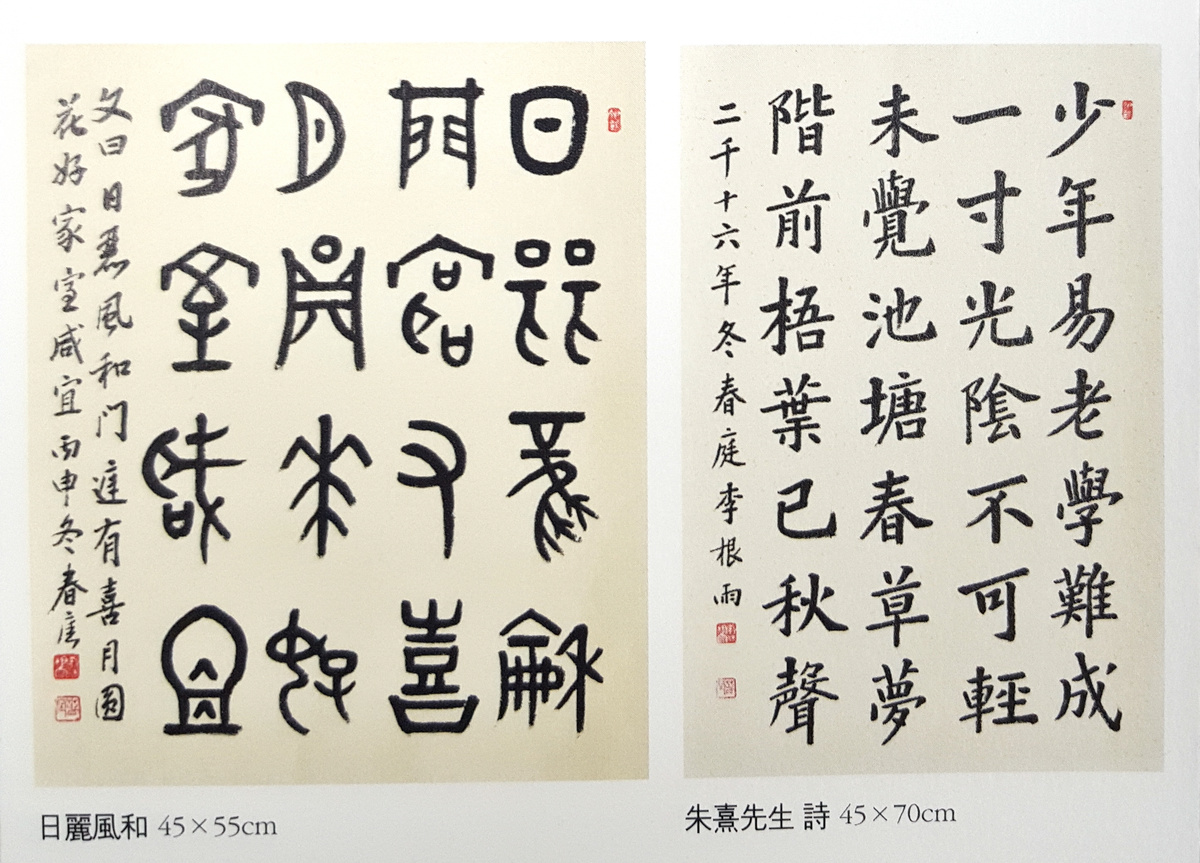 日麗風和
門有喜
月圓花好
家室咸宜
文曰日麗風和门有喜月圓
花好家室咸宜丙申冬春庭
日麗風和 45×55cm
少年易老學難成
一寸光陰不可輕
未覺池塘春草夢
階前梧葉已秋聲
二千十六年冬春庭李根雨
朱熹先生 詩 45×70cm